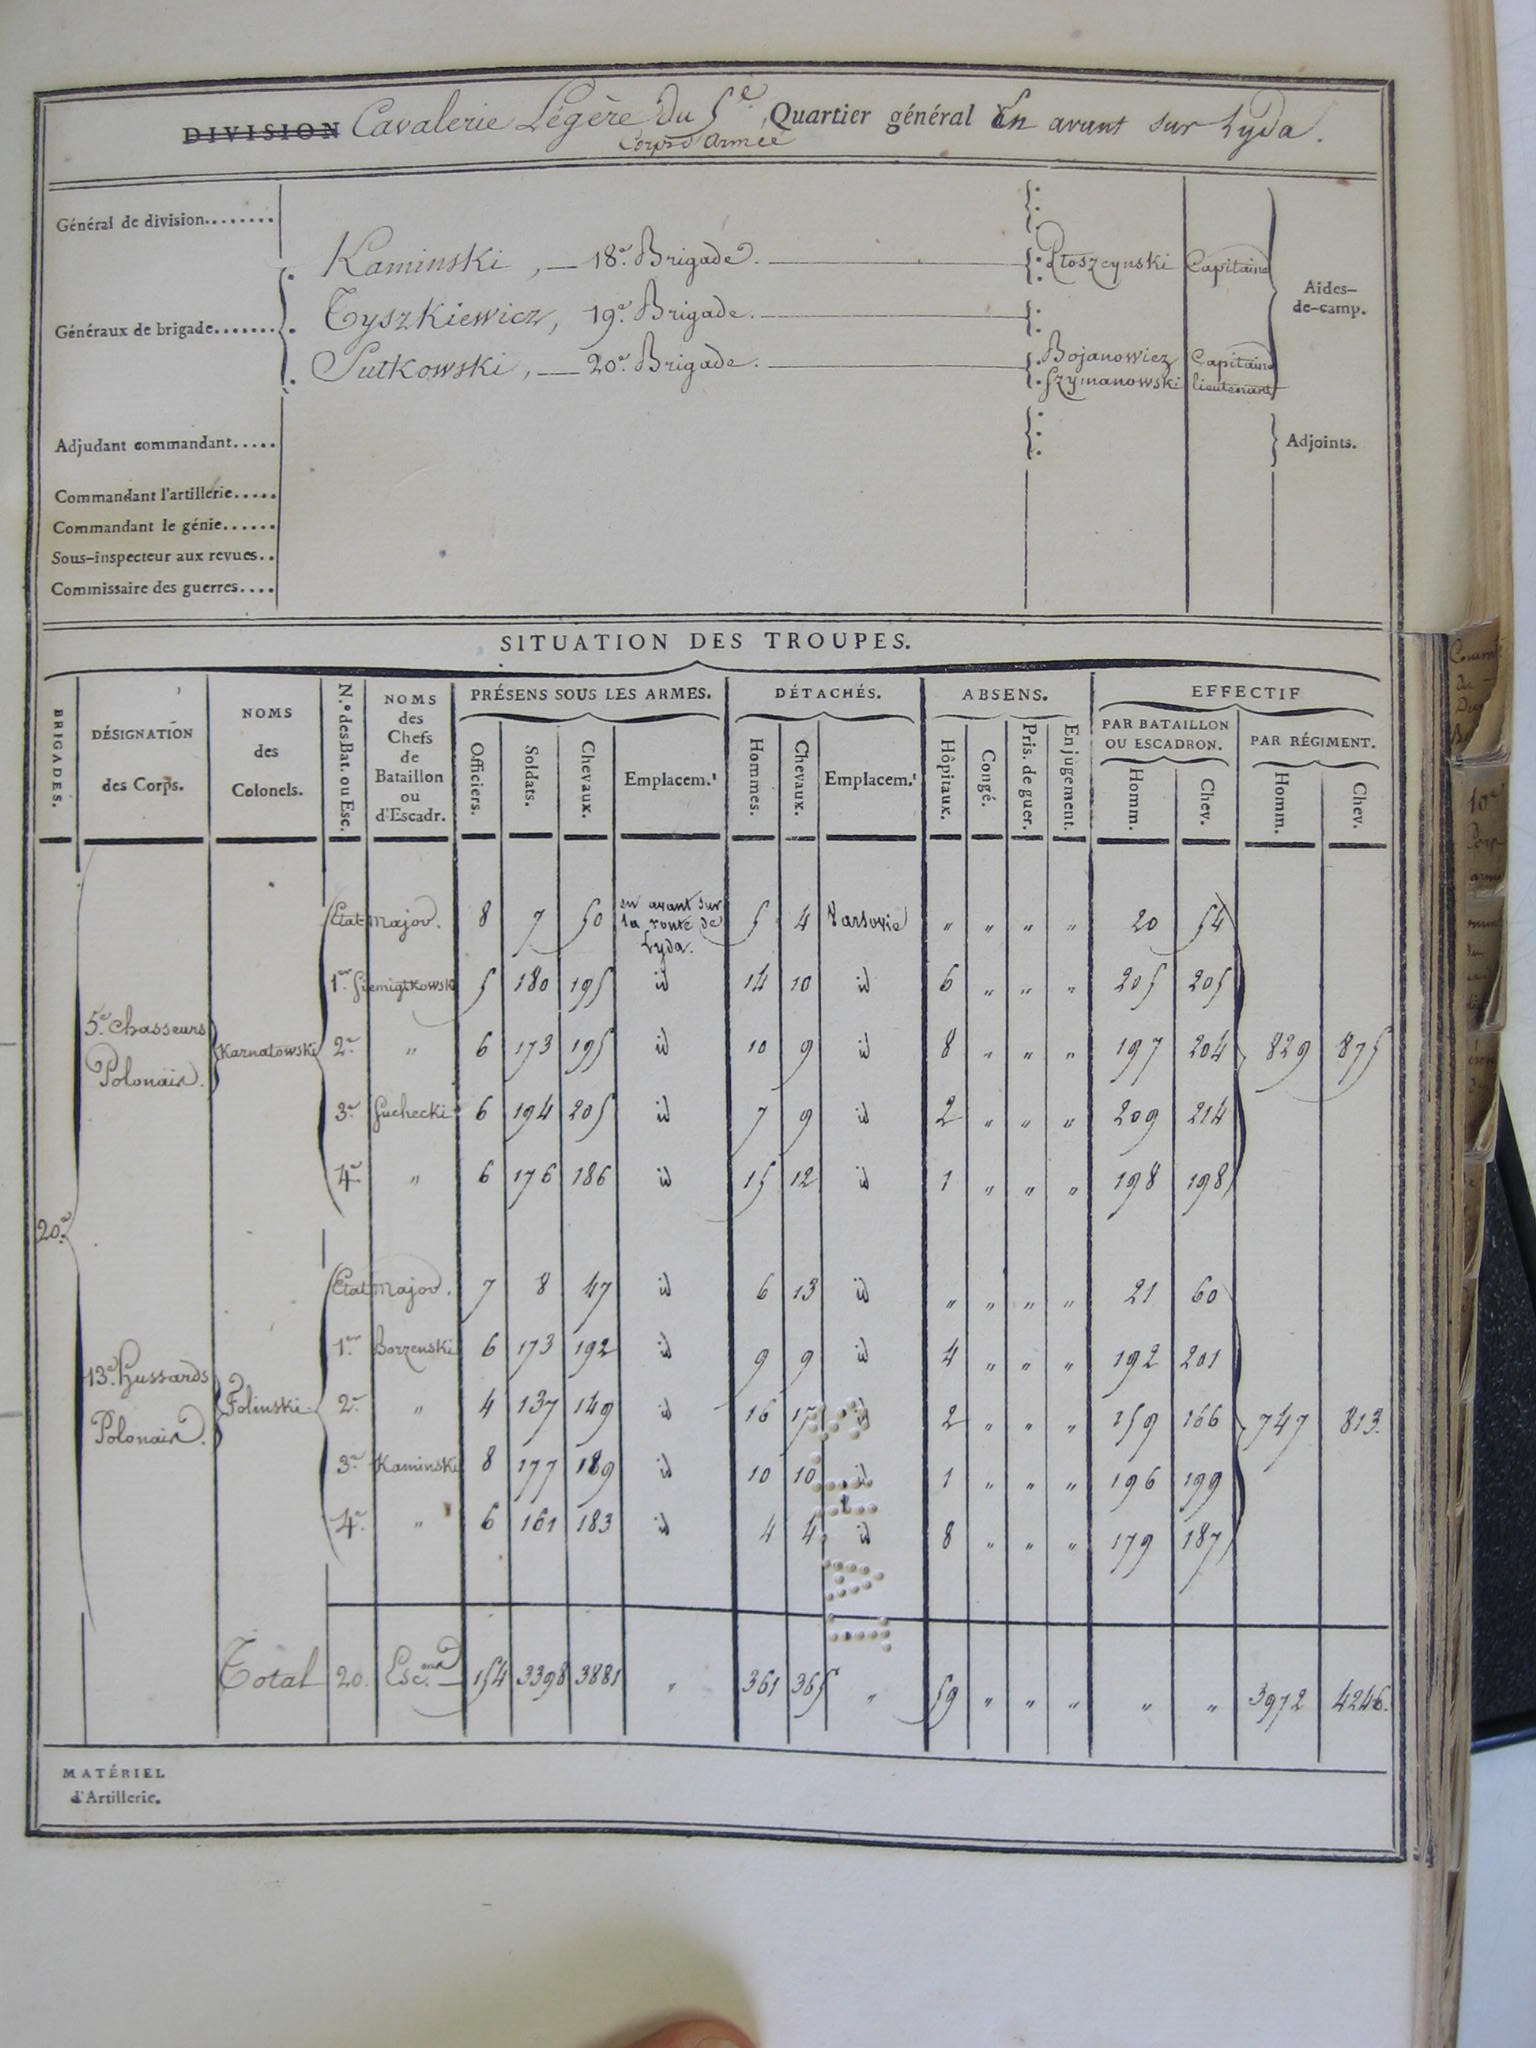 DIVISION Cavalerie Légère du 5e. Quartier général En avant sur Lyda.
Corps d'armée
Général de division........
Kaminski, — 18e. Brigade. Ptoszcynski Capitaine
Généraux de brigade....... Tyszkiewicz, 19e. Brigade. Aides-de-camp.
Sutkowski, — 20e. Brigade. Bojanowicz Capitaine
Szymanowski lieutenant
Adjudant commandant..... Adjoints.
Commandant l'artillerie.....
Commandant le génie......
Sous-inspecteur aux revues..
Commissaire des guerres....
SITUATION DES TROUPES.
BRIGADES. DÉSIGNATION des Corps. NOMS des Colonels. N.º des Bat. ou Esc. NOMS des Chefs de Bataillon ou d'Escadr. PRÉSENS SOUS LES ARMES. DÉTACHÉS. ABSENS. EFFECTIF
PAR BATAILLON OU ESCADRON. PAR RÉGIMENT.
Officiers. Soldats. Chevaux. Emplacem.t Hommes. Chevaux. Emplacem.t Hôpitaux. Congé. Pris. de guer. En jugement. Homm. Chev. Homm. Chev.
Etat Major. 8 7 50 en avant sur la route de Lyda. 5 4 Varsovie " " " " 20 54
1er. 5 180 195 id 14 10 id 6 " " " 205 205
5e. Chasseurs Polonais. Karnatowski 2e. " 6 173 195 id 10 9 id 8 " " " 197 204 829 875
3e. Suchecki 6 194 205 id 7 9 id 2 " " " 209 214
4e. " 6 176 186 id 15 12 id 1 " " " 198 198
20e.
Etat Major. 7 8 47 id 6 13 id " " " " 21 60
1er. Borzenski 6 173 192 id 9 9 id 4 " " " 192 201
13e. Hussards Polonais. Tolinski 2e. " 4 137 149 id 16 17 id 2 " " " 159 166 747 813.
3e. Kaminski 8 177 189 id 10 10 id 1 " " " 196 199
4e. " 6 161 183 id 4 4 id 8 " " " 179 187
Total 20. Esc.ons 154 3398 3881 " 361 365 " 59 " " " " " 3972 4246.
MATÉRIEL
d'Artillerie.